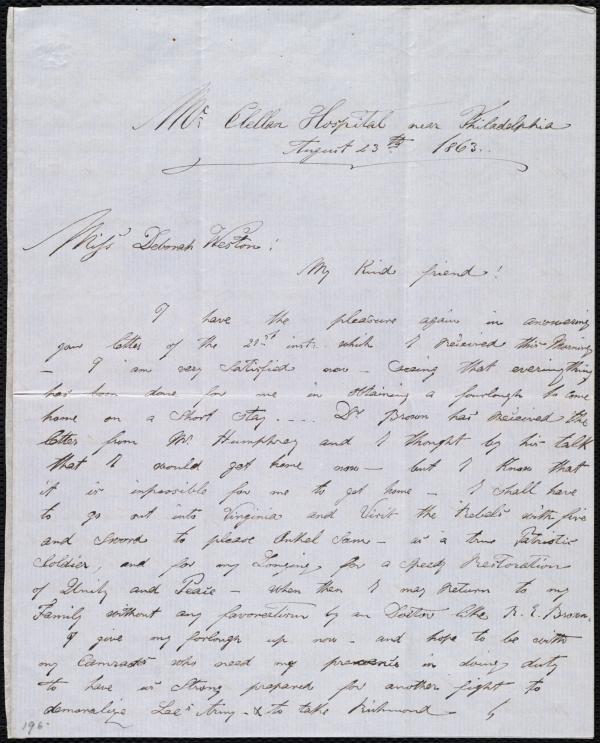 Mc Clellan Hospital near Philadelphia
August 23th 1863.
Miss Deborah Weston!
My Kind friend!
I have the pleasure again in answering
your letter of the 21st inst. which I received this Morning
– I am very Satisfied now – seeing that everything
has been done for me in obtaining a fourlough to come
home on a Short Stay. ... Dr Brown has received the
letter from Mr Humphrey and I thought by his talk
that I would get home now – but I Know that
it is inpossible for me to get home – I shall have
to go out into Virginia and Visit the Rebels with fire
and Sword to please Onkel Sam – as a true Patriotic
Soldier, and for my Longing for a speedy Restoration
of Unity and Peace – when then I may return to my
Family without any favoreatism by an Doctor like R. E. Brown.
I give my forlough up now – and hope to be with
my Camrads who need my presence in doing duty
to have us Strong prepared for another fight to
demoralize Lee's Army – & to take Richmond
196.